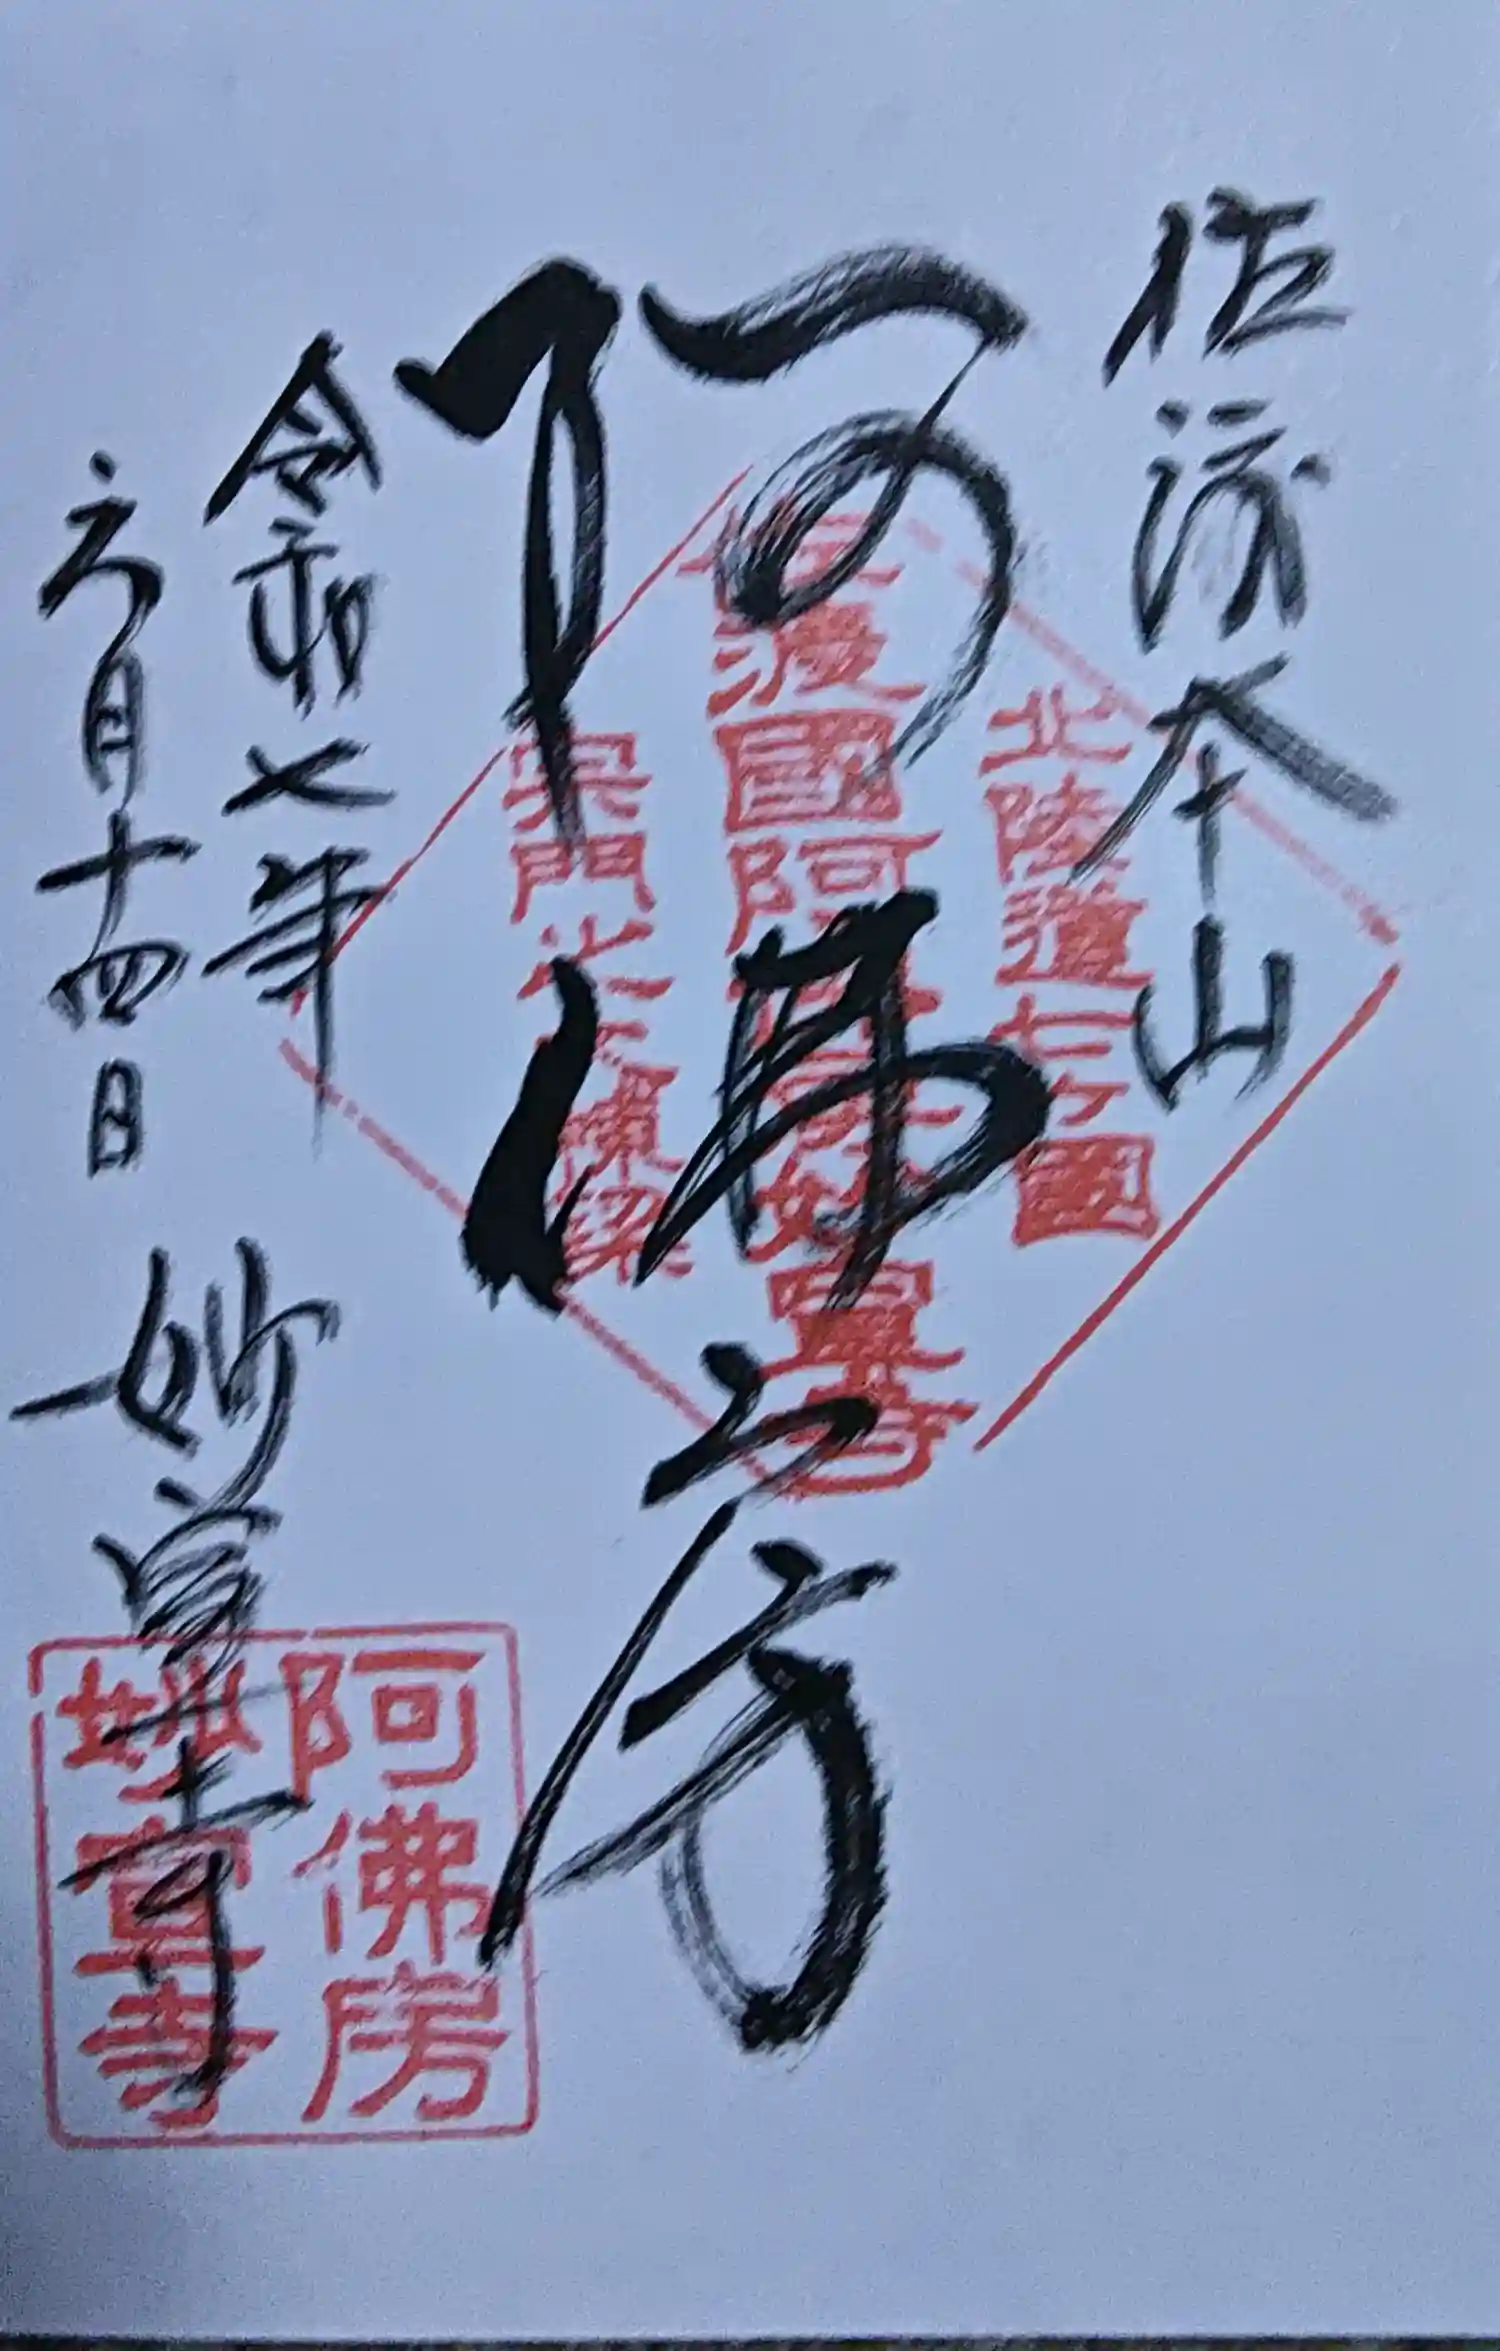 佐渡本山
北陸道七ヶ國
佐渡國阿佛房妙宣寺
宗門
阿佛房
令和七年
六月十四日 妙宣寺
阿佛房
妙宣寺